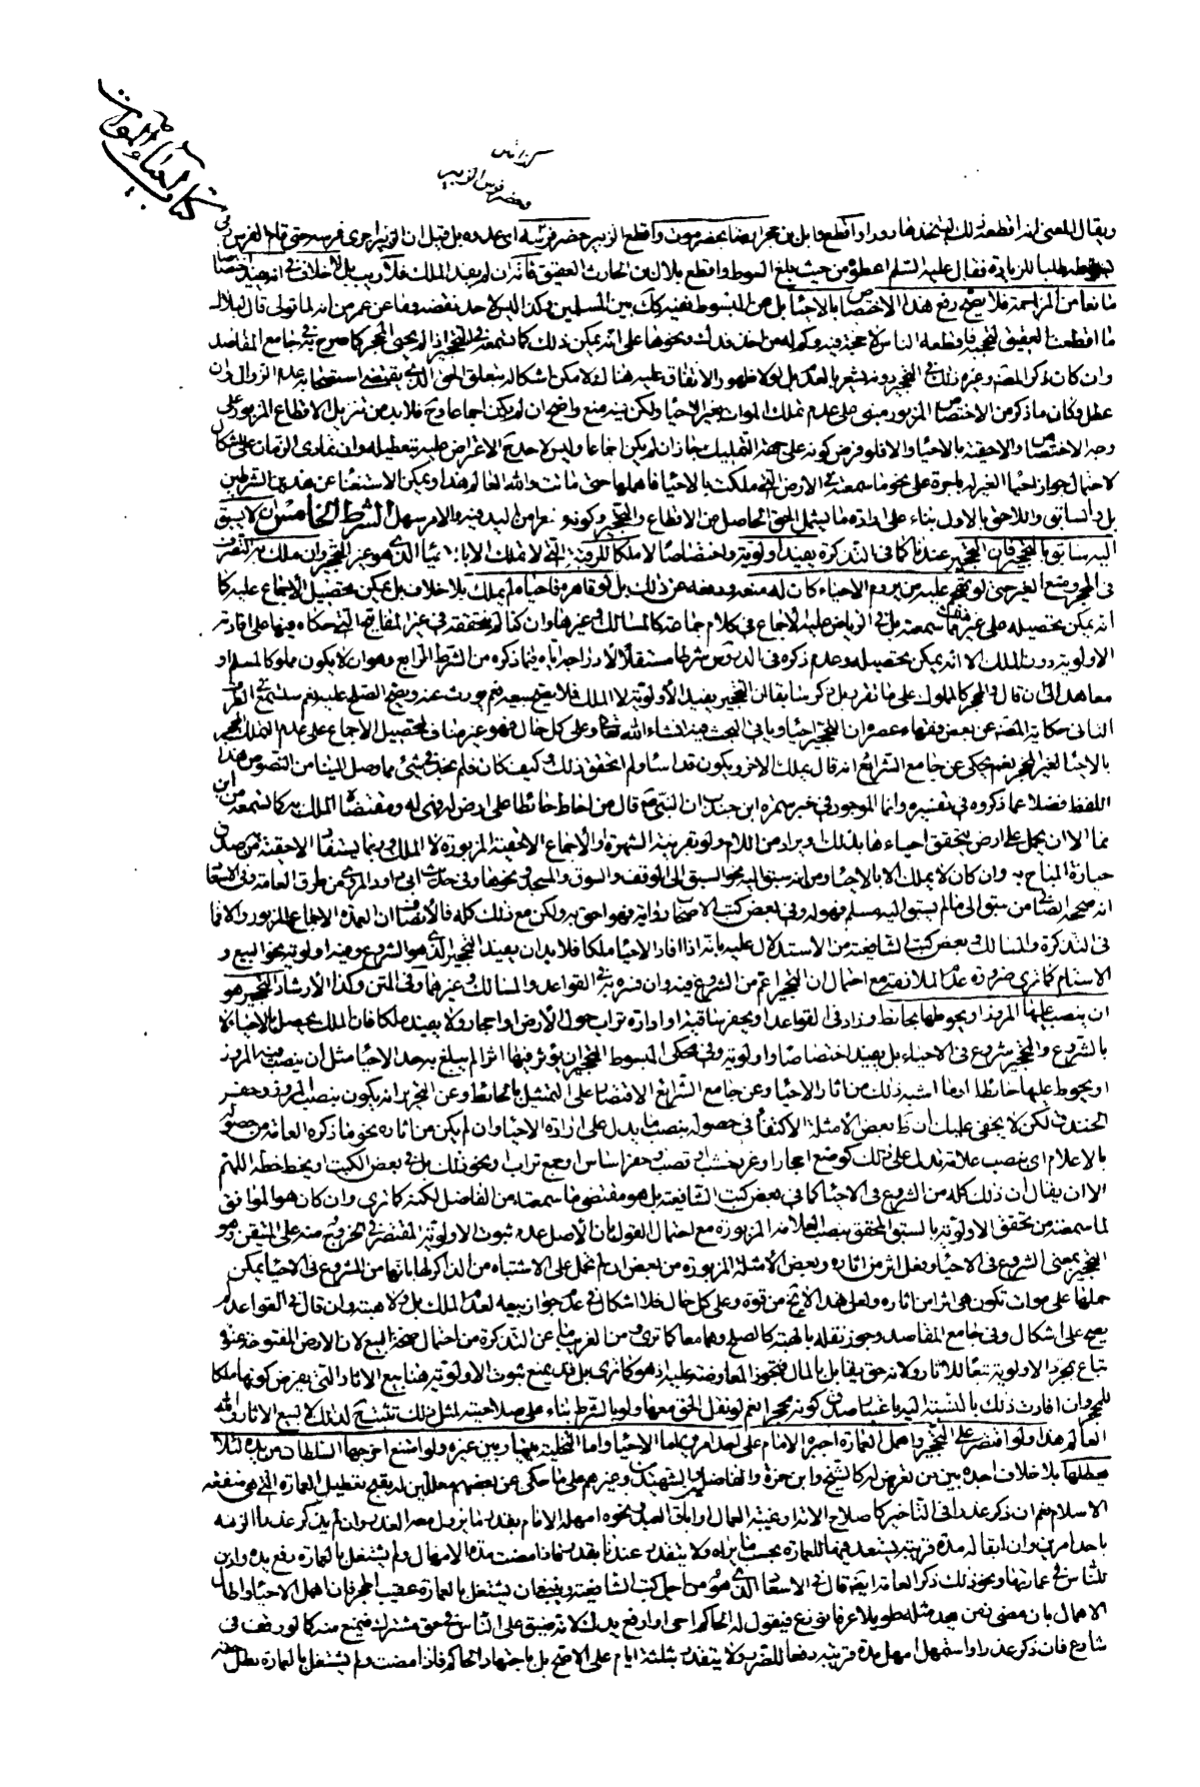 كتاب احياء الموات
ويقال المعنى انه اقطعه ذلك ليتخذها دورا واقطع وابل بن حجر ارضا بحضرموت واقطع الزبير حضر فرسه اى عدوه بل قيل ان الزبير اجرى فرسه حتى قام الفرس
طلبا للزيادة فقال عليه السلم اعطوه من حيث بلغ السوط واقطع بلال بن الحارث العقيق فانه ان لم يفد الملك فلا ريب بل لا خلاف فى انه يفيد
مانعا من المزاحمة فلا يصح رفع هذا الاختصاص بالاحياء بل عن المبسوط نفيه بين المسلمين وكذا ليس لاحد نقضه وما عن عمر من انه لما تولى قال لبلال
ما اقطعت العقيق لتحجبه فاقطعه الناس لا حجة فيه وكم له من اخذ فدك ونحوها على انه يمكن ذلك كما تسمعه فى التحجير اذا لم يحيى المحجر كما صرح به فى جامع المقاصد
وان كان ذكر المصنف وغيره ذلك فى التحجير دونه يشعر بالعدم بل لولا ظهور الاتفاق عليه هناك لامكن اشكاله بتعلق الحق الذى يقتضى استصحابه عدم الزوال وان
عطل وكان ما ذكر من الاختصاص المزبور مبنى على عدم تملك الموات بغير الاحياء ولكن فيه منع واضح ان لم يكن اجماعا وح فلا بد من تنزيل الاقطاع المزبور على
وجه الاختصاص والاحقية بالاحياء والا فلو فرض كونه على جهة التمليك جاز ان لم يكن اجماعا وليس لاحد ح الاعتراض عليه بتعطيله وان تمادى الزمان على اشكال
لاحتمال جواز احياء الغير له باجرة على نحو ما سمعته فى الارض التى ملكت بالاحياء فاهملها حتى ماتت والله العالم هذا ويمكن الاستغناء عن هذين الشرطين
بل والسابق واللاحق بالاول بناء على ارادة ما يشمل الحق الحاصل من الاقطاع والتحجير وكونه من اليد فيه والامر سهل الشرط الخامس ان لا يسبق
اليه سابق بالتحجير فان التحجير عندنا كما فى التذكرة يفيد اولوية واختصاصا لا ملكا للرقبة التى لا تملك الا بالاحياء الذى هو غير التحجير وان ملك به التصرف
فى المحجر ومنع الغير حتى لو تهجم عليه من يروم الاحياء كان له منعه ودفعه عن ذلك بل لو قاهره فاحياه لم يملك بلا خلاف بل يمكن تحصيل الاجماع عليه كما
انه يمكن تحصيله على غيره مما سمعته بل فى الرياض عليه الاجماع فى كلام جماعة كالمسالك وغيرها وان كنا لم نتحققه فى غير المفاتيح التى حكاه فيها على افادته
الاولوية دون الملك الا انه يمكن تحصيله وعدم ذكره فى الدروس شرطا مستقلا لادراجه اياه فيما ذكره من الشرط الرابع وهو ان لا يكون مملوكا لمسلم او
معاهد الى ان قال والمحجر كالمملوك على ما تقرر بل ذكر سابقا ان التحجير يفيد الاولوية لا الملك فلا يصح بيعه نعم يورث عنه ويصح الصلح عليه نعم ستسمع فى الطرف
الثانى حكاية المصنف عن بعض فقهاء عصره ان التحجير احياء ويأتى البحث فيه انشاء الله تعالى وعلى كل حال فهو غير مناف لتحصيل الاجماع على عدم الملك للمحجر
بالاحياء لغير المحجر نعم حكى عن جامع الشرائع انه قال يملك الاخر ويكون قد اساء ولم اتحقق ذلك وكيف كان فلم نجد فى شئ مما وصل الينا من النصوص هذا
اللفظ فضلا عما ذكروه فى تفسيره وانما الموجود فى خبر سمرة ابن جندب ان النبى ص قال من احاط حائطا على ارض فهى له ومقتضاه الملك به كما تسمعه من ابن
نما الا ان يحمل على ارض يتحقق احياءها بذلك او يراد من اللام ولو بقرينة الشهرة والاجماع الاحقية المزبورة لا الملك وربما يستفاد الاحقية من صدق
حيازة المباح به وان كان لا يملك الا بالاحياء ومن انه سبق اليه نحو السبق الى الوقف والسوق والمسجد ونحوها وفى حديث ابى داود المروى من طرق العامة وفى الاسعاد
انه صححه الضياء من سبق الى ما لم يسبق اليه مسلم فهو له وفى بعض كتب الاصحاب روايته فهو احق به ولكن مع ذلك كله فالانصاف ان العمدة الاجماع المزبور والا فما
فى التذكرة والمسالك وبعض كتب الشافعية من الاستدلال عليه بانه اذا افاد الاحياء ملكا فلا بد ان يفيد التحجير الذى هو الشروع فيه اولوية نحو البيع و
الاستيام كما ترى ضرورة عدم الملازمة مع احتمال ان التحجير اعم من الشروع فيه وان فسره به فى القواعد والمسالك وغيرهما وفى المتن وكذا الارشاد التحجير هو
ان ينصب عليها المروز او يحوطها بحائط وزاد فى القواعد او يحفر ساقية او ادارة تراب حول الارض او احجار ولا يفيد ملكا فان الملك يحصل بالاحياء لا
بالشروع والتحجير شروع فى الاحياء بل يفيد اختصاصا واولوية وفى محكى المبسوط التحجير ان يؤثر فيها اثرا لم يبلغ به حد الاحياء مثل ان ينصب فيه المروز
او يحوط عليها حائطا او ما اشبه ذلك من اثار الاحياء وعن جامع الشرائع الاقتصار على التمثيل بالحائط وعن التحرير انه يكون بنصب المروز وحفر
الخندق لكن لا يخفى عليك ان ظ بعض الامثلة الاكتفاء فى حصوله بنصب ما يدل على ارادة الاحياء وان لم يكن من اثاره نحو ما ذكره العامة من حصوله
بالاعلام اى ينصب علامة تدل على ذلك كوضع احجار او غرز خشب او قصب وحفر اساس او جمع تراب او نحو ذلك بل فى بعض الكتب او يخط خطه اللهم
الا ان يقال ان ذلك كله من الشروع فى الاحياء كما فى بعض كتب الشافعية بل هو مقتضى ما سمعته من الفاضل لكنه كما ترى وان كان هو الموافق
لما سمعته من تحقق الاولوية بالسبق المحقق بنصب العلامة المزبورة مع احتمال القول بان الاصل عدم ثبوت الاولوية المقتصر فى الخروج منه على المتيقن وهو
التحجير بمعنى الشروع فى الاحياء وبفعل اثر من اثاره وبعض الامثلة المزبورة من بعضهم تحمل على الاشتباه من الذاكر لها بانها من الشروع فى الاحياء يمكن
حملها على موات تكون هى اثر من اثاره ولعل هذا لا يخ من قوة وعلى كل حال فلا اشكال فى عدم جواز بيعه لعدم الملك بل ولا هبته وان قال فى القواعد
يصح على اشكال وفى جامع المقاصد وجوز نقله بالهبة كالصلح وهما معا كما ترى ومن الغريب ما عن التذكرة من احتمال صحة البيع لان الارض المفتوحة عنوة
تباع بمجرد الاولوية تبعا للاثار ولانه حق يقابل بالمال فتجوز المعاوضة عليه اذ هو كما ترى بل قد يمنع ثبوت الاولوية هنا ببيع الاثار التى يفرض كونها ملكا
للمحجر وان افادت ذلك بالنسبة اليه باعتبار صدق كونه محجرا نعم لو نقل الحق معها ولو بالشرط بناء على صلاحيته لمثل ذلك تستتبع لذلك لا لبيع الاثار والله
العالم هذا ولو اقتصر على التحجير واهمل العمارة اجبره الامام على احد امرين اما الاحياء واما التخلية بينها وبين غيره ولو امتنع اخرجها السلطان من يده لئلا
يعطلها بلا خلاف اجده بين من تعرض له كالشيخ وابن حمزة والفاضل والشهيدين وغيرهم على ما حكى عن بعضهم معللين له بقبح تعطيل العمارة التى هى منفعة
الاسلام نعم ان ذكر عذرا فى التاخير كاصلاح الالة او غيبة العمال او اباق العبد نحوه امهله الامام بقدر ما يزول معه العذر وان لم يذكر عذرا الزمه
باحد امرين وان ابقاه مدة قريبة يستعد فيها للعمارة بحسب ما يراه ولا يتقدر عندنا بقدر فاذا مضت مدة الامهال ولم يشتغل بالعمارة رفع يده واذن
للناس فى عمارتها ونحو ذلك ذكر العامة ايضا قال فى الاسعاد الذى هو من اجل كتب الشافعية وينبغى ان يشتغل بالعمارة عقيب التحجر فان اهمل الاحياء واطال
الاهمال بان مضى زمن يعد مثله طويلا عرفا فيقول له الحاكم احى او ارفع يدك لانه ضيق على الناس فى حق مشترك فيمنع منه كما لو وقف فى
شارع فان ذكر عذرا واستمهل امهل مدة قريبة دفعا للضرر ولا يتقدر بثلثة ايام على الاصح بل باجتهاد الحاكم فاذا مضت ولم يشتغل بالعمارة بطل حقه